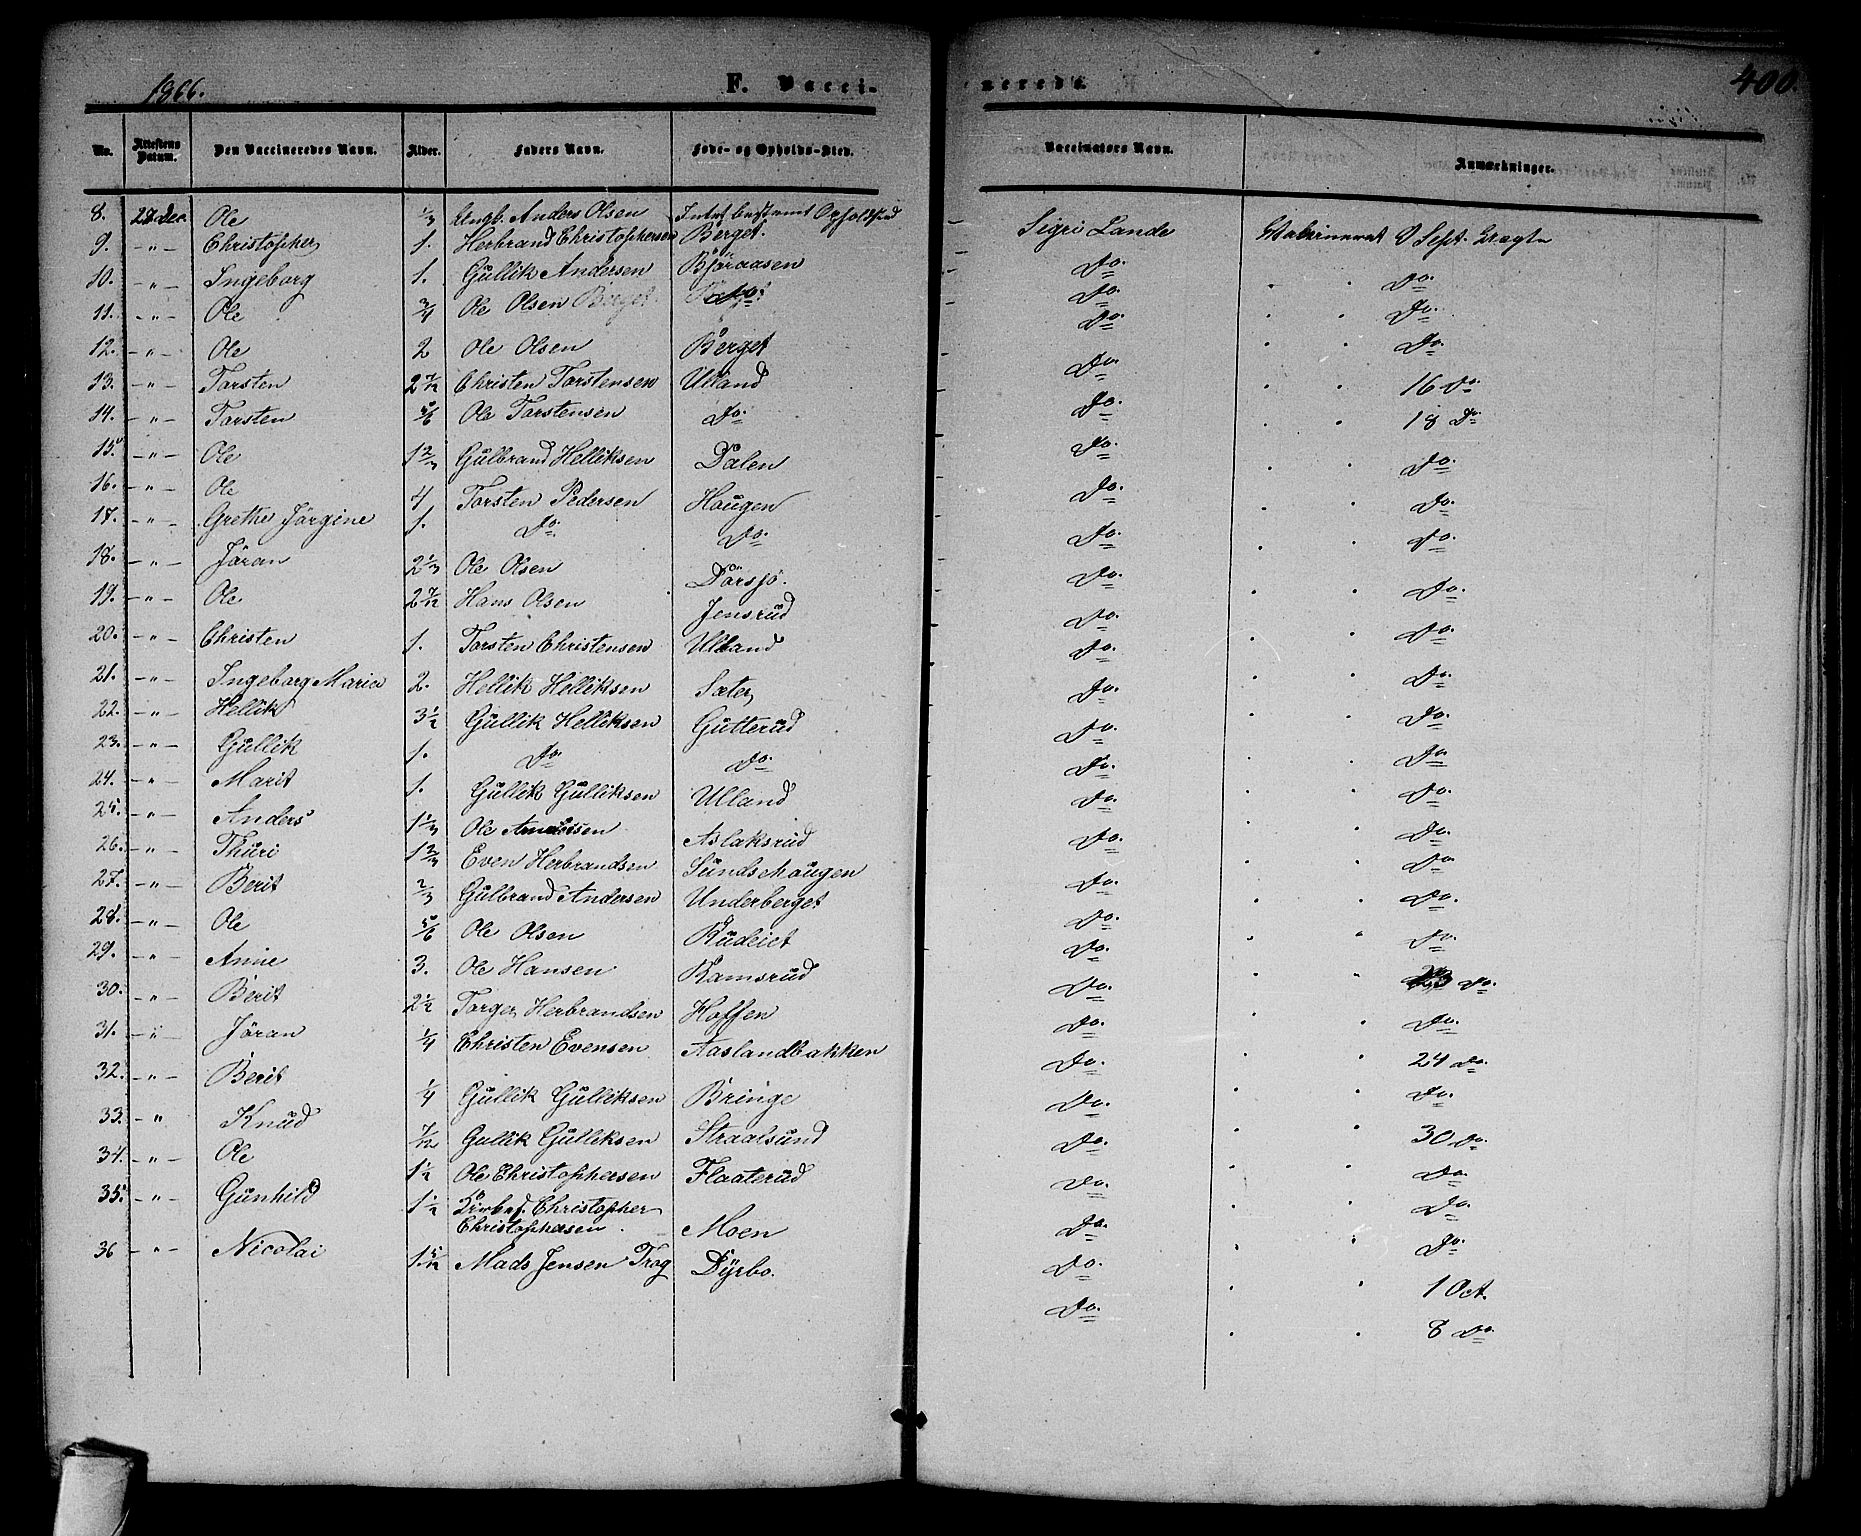 1866. F. Vacci- nerede. 400.
No. Attestens Datum. Den Vaccineredes Navn. Alder. Faders Navn. Føde- og Opholds-Sted. Vaccinators Navn. Anmærkninger.
8. 28 Dec. Ole 1/3 Ungk. Anders Olsen Intet bestemt Opholdsted Sigri Lande Vakcineret 9 Sept. Ægte
9. -"- Christopher 1. Herbrand Christophersen Berget. Do. " " Do.
10. -"- Ingeborg 1. Gullik Andersen Björaasen Do. " " Do.
11. -"- Ole 3/4 Ole Olsen Berget. Do. Do. " " Do.
12. -"- Ole 2 Ole Olsen Berget Do. " " 16 Do.
13. -"- Torsten 2 7/12 Christen Torstensen Ulland Do. " " 18 Do.
14. -"- Torsten 5/6 Ole Torstensen Do. Do. " " Do.
15. -"- Ole 1 2/3 Gulbrand Helliksen Dalen Do. " " Do.
16. -"- Ole 4 Torsten Pedersen Hougen Do. " " Do.
17. -"- Grethe Jörgine 1. Do. Do. Do. " " Do.
18. -"- Jöran 2 1/3 Ole Olsen Dörsjö. Do. " " Do.
19. -"- Ole 2 7/12 Hans Olsen Jensrud Do. " " Do.
20. -"- Christen 1. Torsten Christensen Ulland Do. " " Do.
21. -"- Ingeborg Maria 2. Hellik Helliksen Sæter Do. " " Do.
22. -"- Hellik 3 1/2 Gullik Helliksen Gutterud Do. " " Do.
23. -"- Gullik 1. Do. Do. Do. " " Do.
24. -"- Marit 1. Gullik Gulliksen Ulland Do. " " Do.
25. -"- Anders 1 1/3 Ole Andersen Aslaksrud Do. " " Do.
26. -"- Thuri 1 2/3 Even Herbrandsen Sundsehaugen Do. " " Do.
27. -"- Berit 2/3 Gulbrand Andersen Underberget Do. " " Do.
28. -"- Ole 5/6 Ole Olsen Rudeiet Do. " " 23 Do.
29. -"- Anne 3. Ole Hansen Ramsrud Do. " " Do.
30. -"- Berit 2 1/2 Torger Herbrandsen Hoffen Do. " " 24 Do.
31. -"- Jöran 1/4 Christen Evensen Aaslandbakken Do. " " Do.
32. -"- Berit 1/4 Gullik Gulliksen Bringe Do. " " 30 Do.
33. -" Knud 7/12 Gullik Gulliksen Straalsund Do. " " Do.
34. -"- Ole 1 1/2 Ole Christophersen Flaaterud Do. " " Do.
35. -"- Gunhild 1 1/2 Christopher Christophersen Moen Do. " " Do.
36 -"- Nicolai 1 5/12 Mads Jensen Trog Dyrbo. Do. " " 1 Oct.
Do. " " 8 Do.